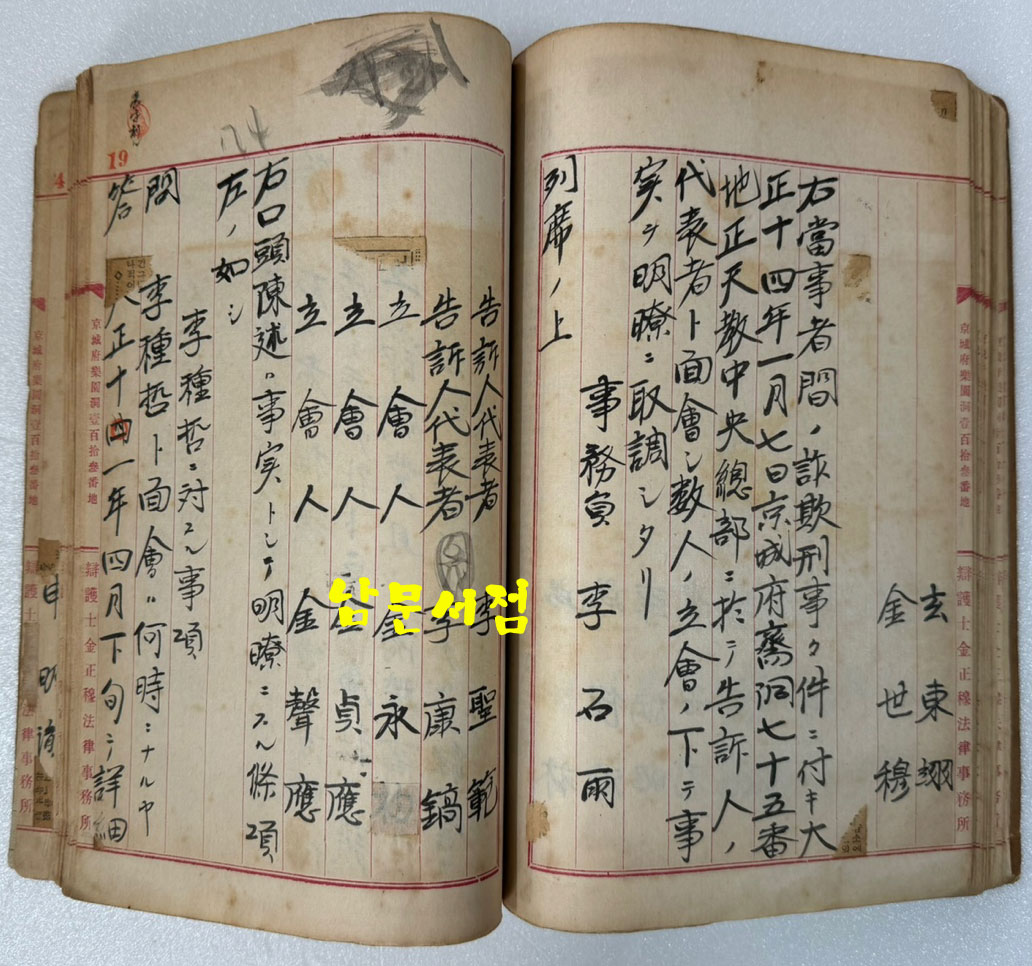 玄東翊
金世穆
右當事者間ノ詐欺刑事々件ニ付キ大
正十四年一月七日京城府齋洞七十五番
地正天教中央總部ニ於テ告訴人ノ
代表者ト面會シ数人ノ立會ノ下ニテ事
実ヲ明瞭ニ取調シタリ
事務員 李石雨
列席ノ上
告訴人代表者 李聖範
告訴人代表者 李康鎬
立會人 金永
立會人 金貞應
立會人 金聲應
右口頭陳述ハ事実トシテ明瞭ニスル條項
左ノ如シ
李種哲ニ対スル事項
問 李種哲ト面會ハ何時ニナルヤ
答 大正十四一年四月下旬ニテ詳細
19
4
京城府樂園洞壹百拾叄番地
辯護士金正穆法律事務所
京城府樂園洞壹百拾叄番地
辯護士金正穆法律事務所
京城府樂園洞壹百拾叄番地
律事務所
남문서점